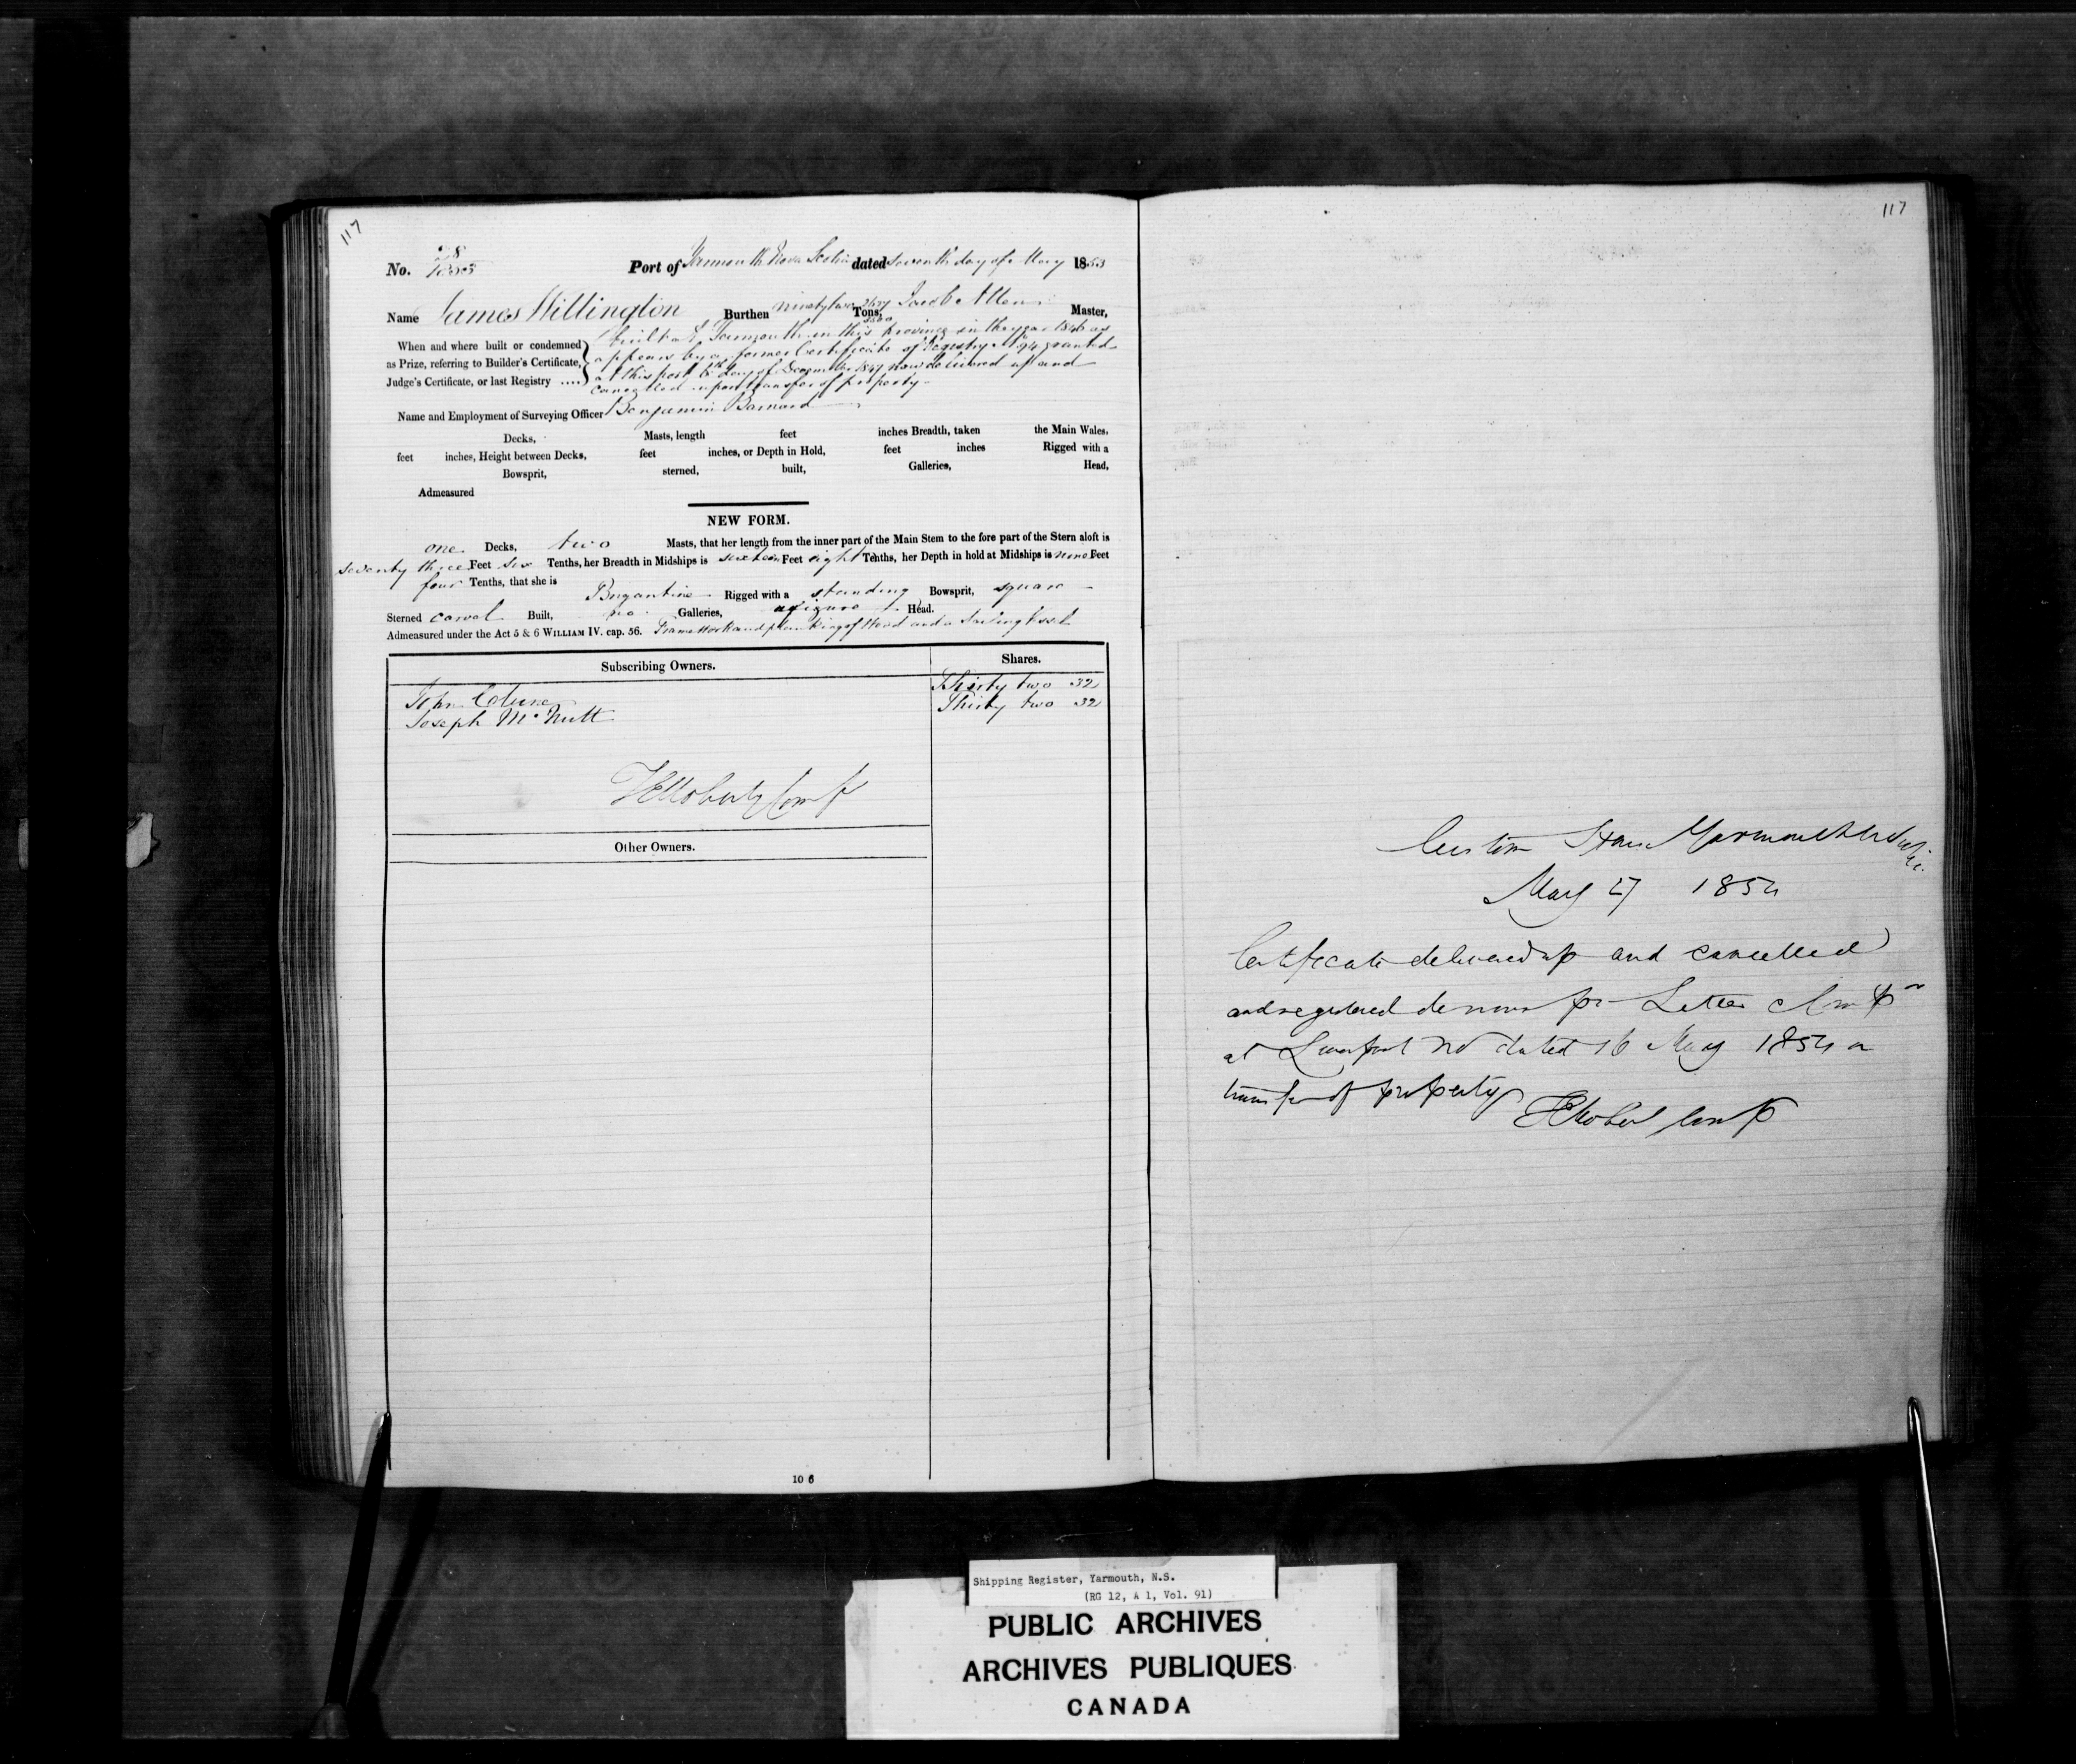 117
117
No. 28
1853
Port of Yarmouth Nova Scotia dated seventh day of May 1853
Name James Willington Burthen ninety two 2637/3500 Tons, Jacob Allen Master,
When and where built or condemned as Prize, referring to Builder's Certificate, Judge's Certificate, or last Registry ....
built at Yarmouth in this province in the year 1846 as
appears by a former Certificate of Registry No 94 granted
at this port 6th day of December 1847 now delivered up and
cancelled upon transfer of property
Name and Employment of Surveying Officer Benjamin Barnard
Decks, Masts, length feet inches Breadth, taken the Main Wales,
feet inches, Height between Decks, feet inches, or Depth in Hold, feet inches Rigged with a
Bowsprit, sterned, built, Galleries, Head,
Admeasured
NEW FORM.
one Decks, two Masts, that her length from the inner part of the Main Stem to the fore part of the Stern aloft is
seventy three Feet six Tenths, her Breadth in Midships is sixteen Feet eight Tenths, her Depth in hold at Midships is nine Feet
four Tenths, that she is Brigantine Rigged with a standing Bowsprit, square
Sterned carvel Built, no Galleries, a figure Head.
Admeasured under the Act 5 & 6 WILLIAM IV. cap. 56. Framework and planking of Wood and a Sailing Vessel
Subscribing Owners. Shares.
John Thirty two 32
Joseph McNutt Thirty two 32
Comp
Other Owners.
10 6
Custom House Yarmouth
May 27 1854
Certificate delivered up and cancelled
and registered de novo pr Letter Comp
at Liverpool dated 16 May 1854 on
transfer of property
Comp
Shipping Register, Yarmouth, N.S.
(RG 12, A 1, Vol. 91)
PUBLIC ARCHIVES
ARCHIVES PUBLIQUES
CANADA